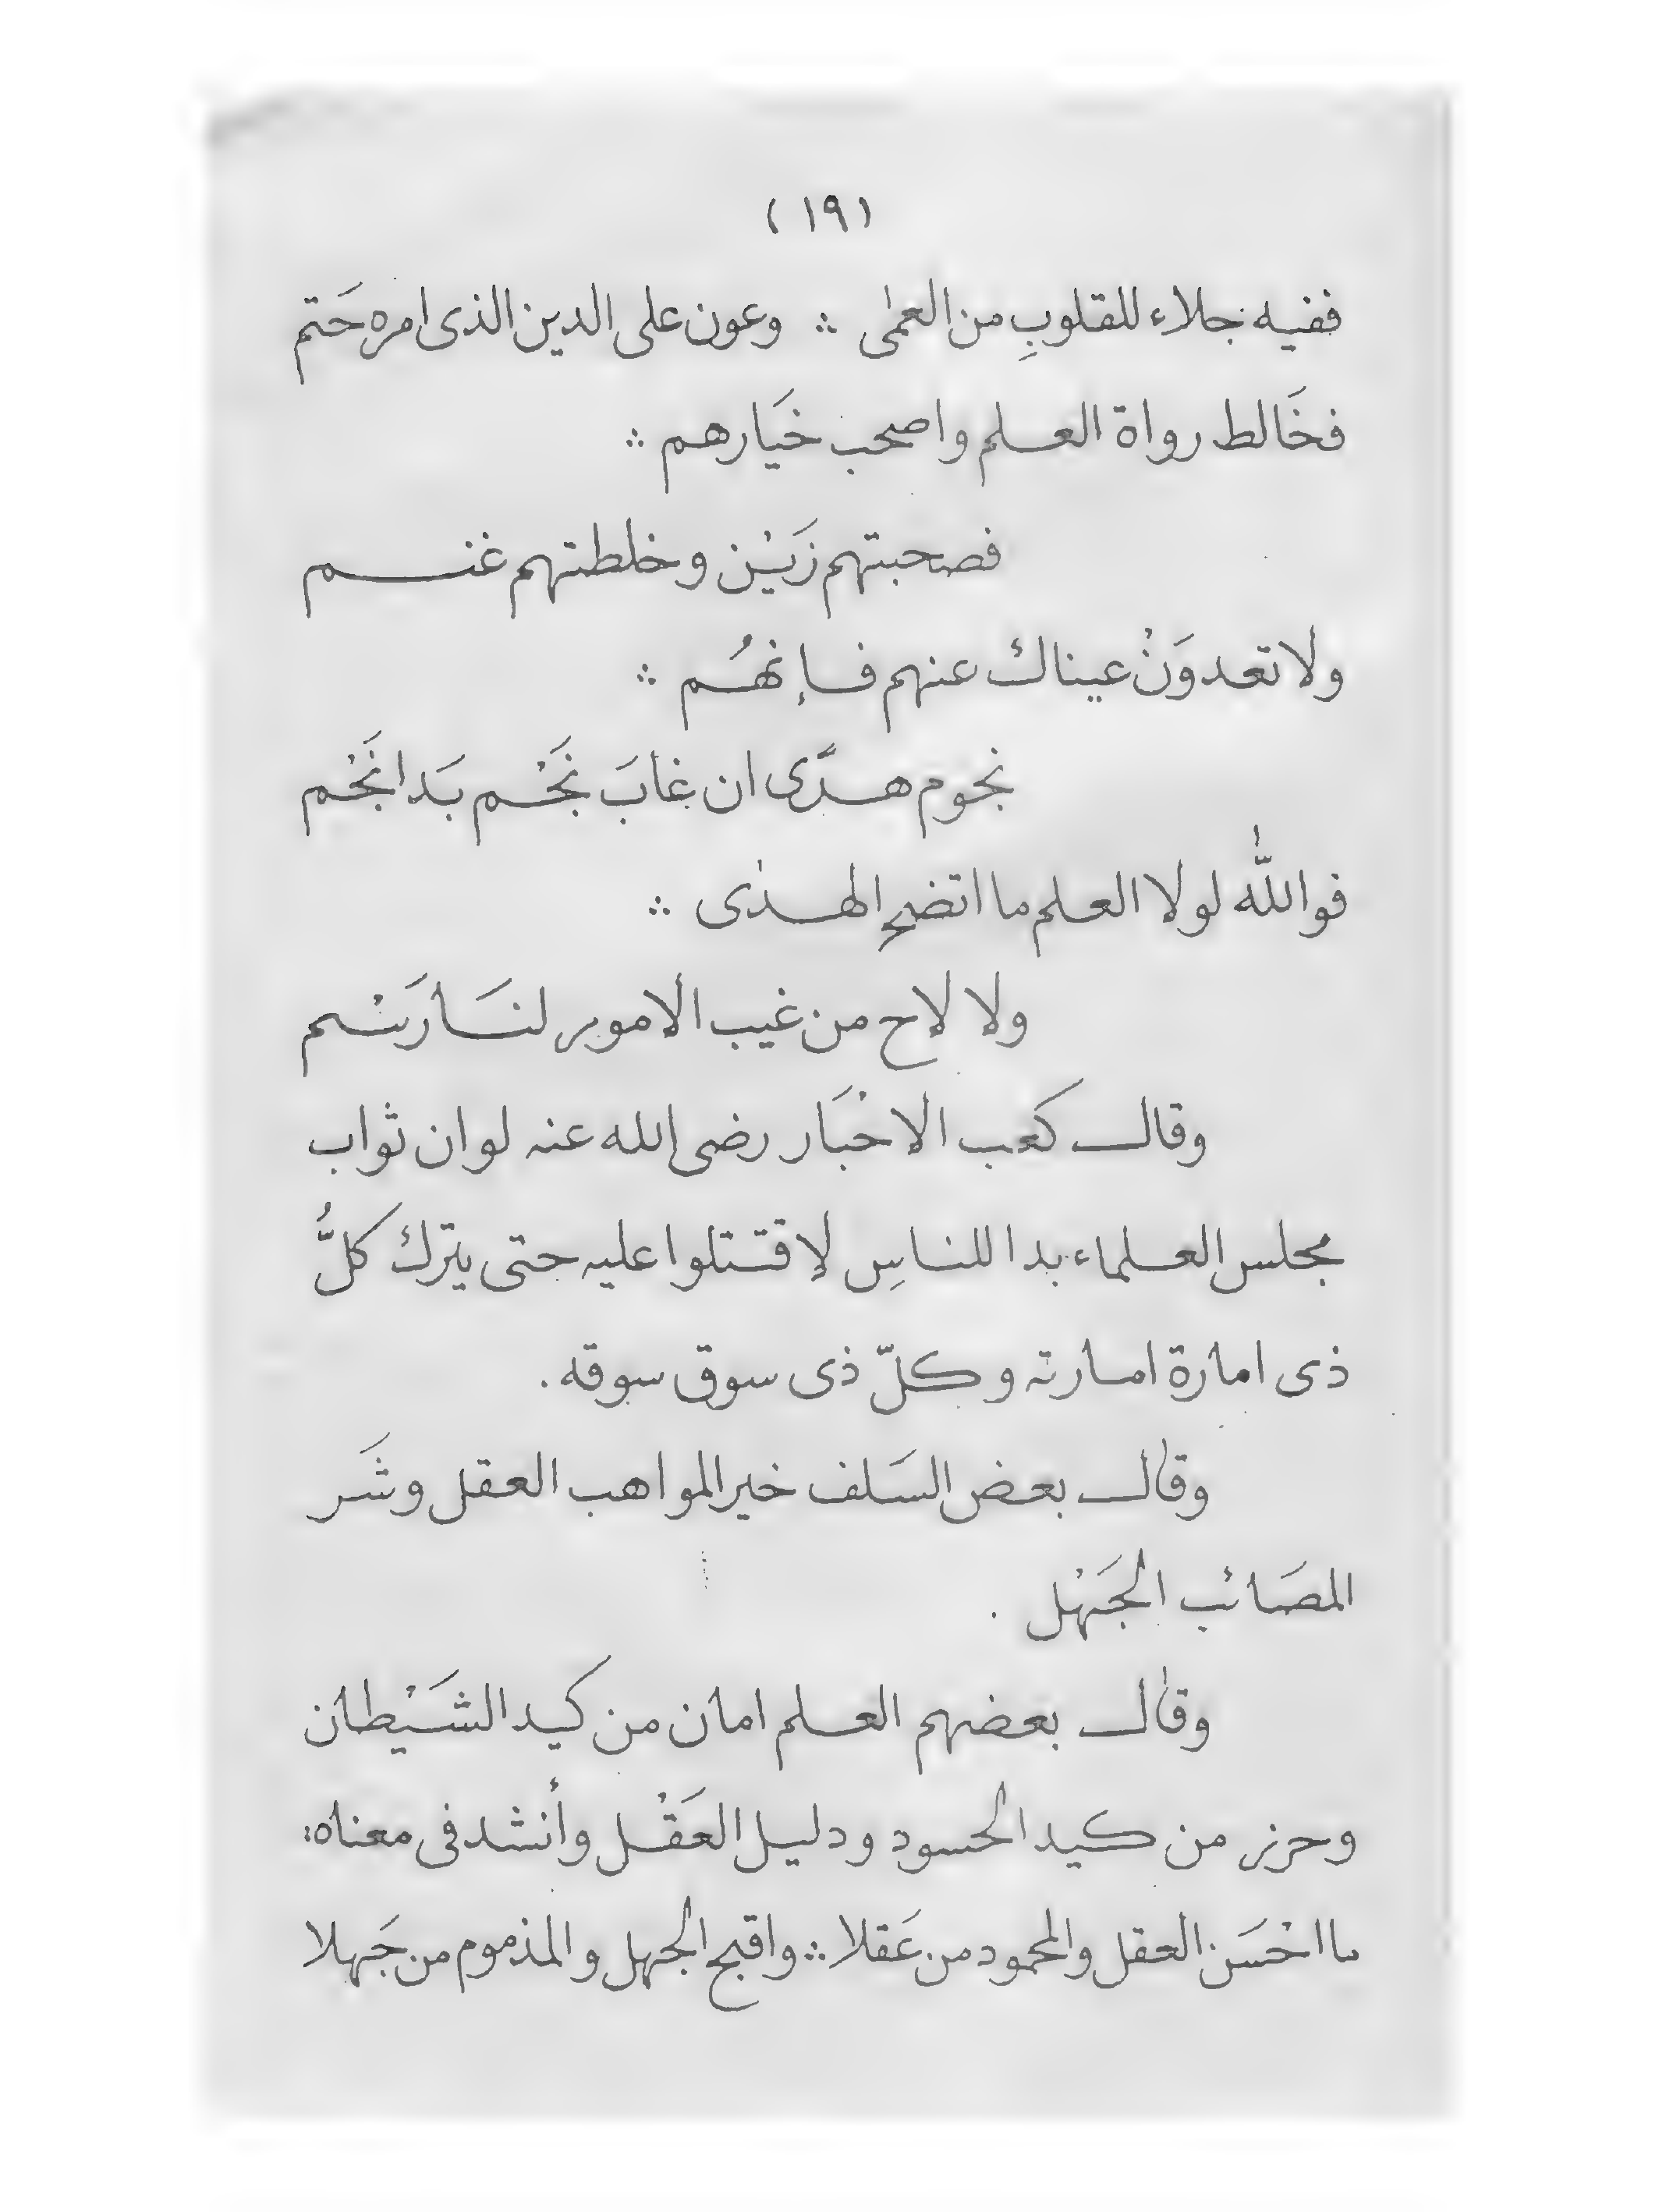 (١٩)
ففيه جلاء للقلوبِ من العمٰى ∴ وعون على الدين الذى امره حَتم
فخَالط رواة العلم واصحب خيَارهم ∴
فصحبتهم زَيْن وخلطتهم غنم
ولا تعدوَنْ عيناك عنهم فإنهُم ∴
نجوم هدًى ان غابَ نَجْم بَدا نَجْم
فواللّٰه لولا العلم ما اتضح الهدٰى ∴
ولا لاح من غيب الامور لنَا رَسْم
وقال كعب الاحْبَار رضى الله عنه لو ان ثواب
مجلس العلماء بدا للناسِ لإقتتلوا عليه حتى يترك كلُّ
ذى امارة امارته وكلّ ذى سوق سوقه .
وقال بعض السَلف خير المواهب العقل وشَر
المصَائب الجَهْل .
وقال بعضهم العلم امان من كيد الشَيْطان
وحرز من كيد الحسود ودليل العَقْل وأنشد فى معناه:
ما احْسَن العقل والمحمود من عَقلا ∴ واقبح الجهل والمذموم من جَهلا